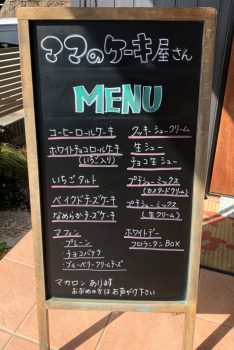 ママのケーキ屋さん
MENU
コーヒーロールケーキ
ホワイトチョコロールケーキ
(いちご入り)
いちごタルト
ベイクドチーズケーキ
なめらかチーズケーキ
マフィン
・プレーン
・チョコバナナ
・ブルーベリークリームチーズ
クッキーシュークリーム
生シュー
チョコ生シュー
プチシューミックス
(カスタードクリーム)
プチシューミックス
(生クリーム)
ホワイトデー
フロランタンBOX
マカロンあります
お求めの方はお声がけ下さい